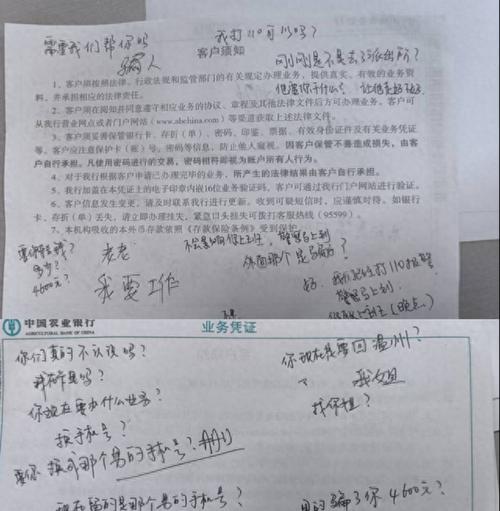 需要我们帮你吗
骗人
我打110可以吗?
客户须知
刚刚是不是去了派出所?
1、客户须按照法律、行政法规和监管部门的有关规定办理业务，提供真实、有效的业务资
料，并承担相应的法律责任。
2、客户须在阅知并同意遵守相应业务的协议、章程及其他法律文件后方可办理业务。客户可
从我行营业网点或者门户网站（www.abchina.com）等渠道获取上述法律文件。
3、客户须妥善保管银行卡、存折（单）、密码、印鉴、票据、有效身份证件及有关业务凭证
等。客户应注意保护卡（账）号、密码等信息，防止他人窥视。因客户保管不善造成损失，由客
户自行承担。凡使用密码进行的交易，密码相符即视为账户所有人行为。
4、对于我行根据客户申请已办理完毕的业务，所产生的法律结果由客户自行承担。
5、我行加盖在本凭证上的电子印章内嵌16位业务验证码，客户可通过我行门户网站进行验证。
6、客户信息发生变更，请及时联系我行进行更新。收到可疑短信时，应谨慎对待。如银行
卡、存折（单）丢失，请立即办理挂失，紧急口头挂失可拨打客服热线（95599）。
7、本机构吸收的本外币存款依照《存款保险条例》受到保护。
多少?
4600元?
老老
我要工作
好
我们现在打110报警
警察马上到
中国农业银行
AGRICULTURAL BANK OF CHINA
业务凭证
你们真的不认识吗?
你现在是要回温州?
你现在要办什么业务?
我女姐
换手机号?
找你姐?
要你换成那个男的手机号?
现在留的是那个男的手机号?
男的骗了你4600元?